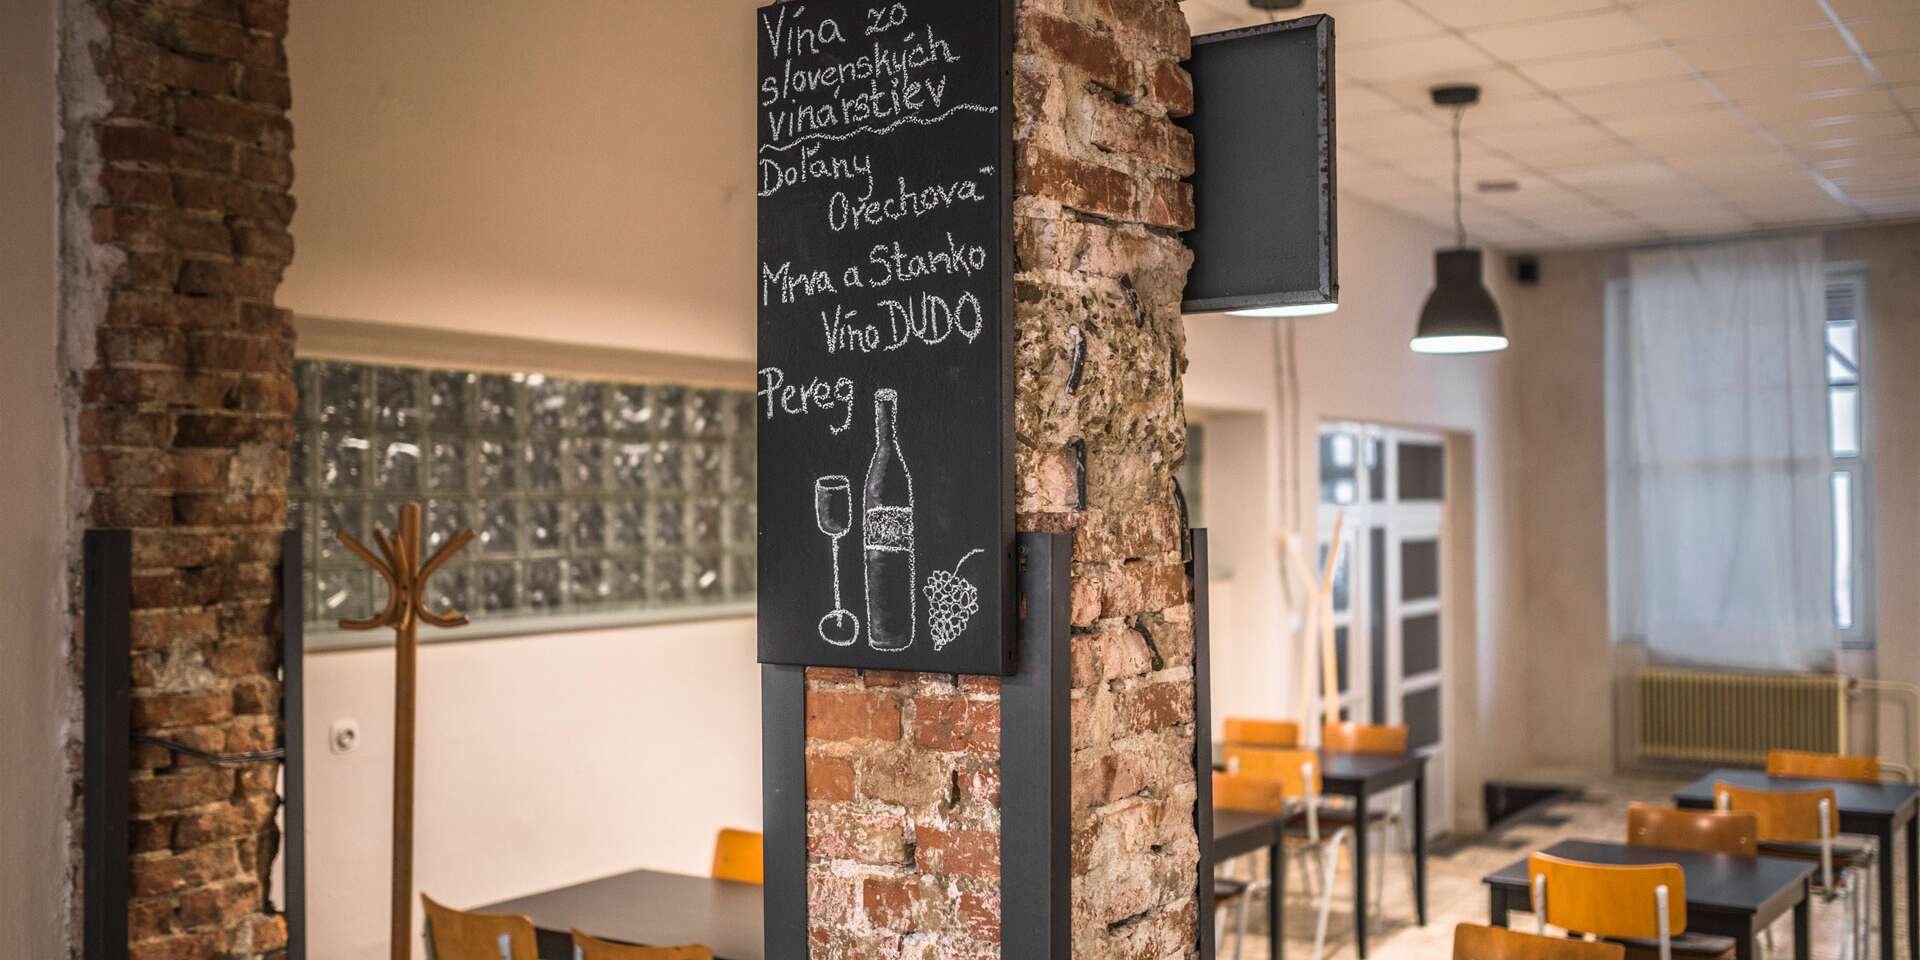 Vína zo
slovenských
vinarstiev
Doľany
Orechová
Mrva a Stanko
Víno DUDO
Pereg